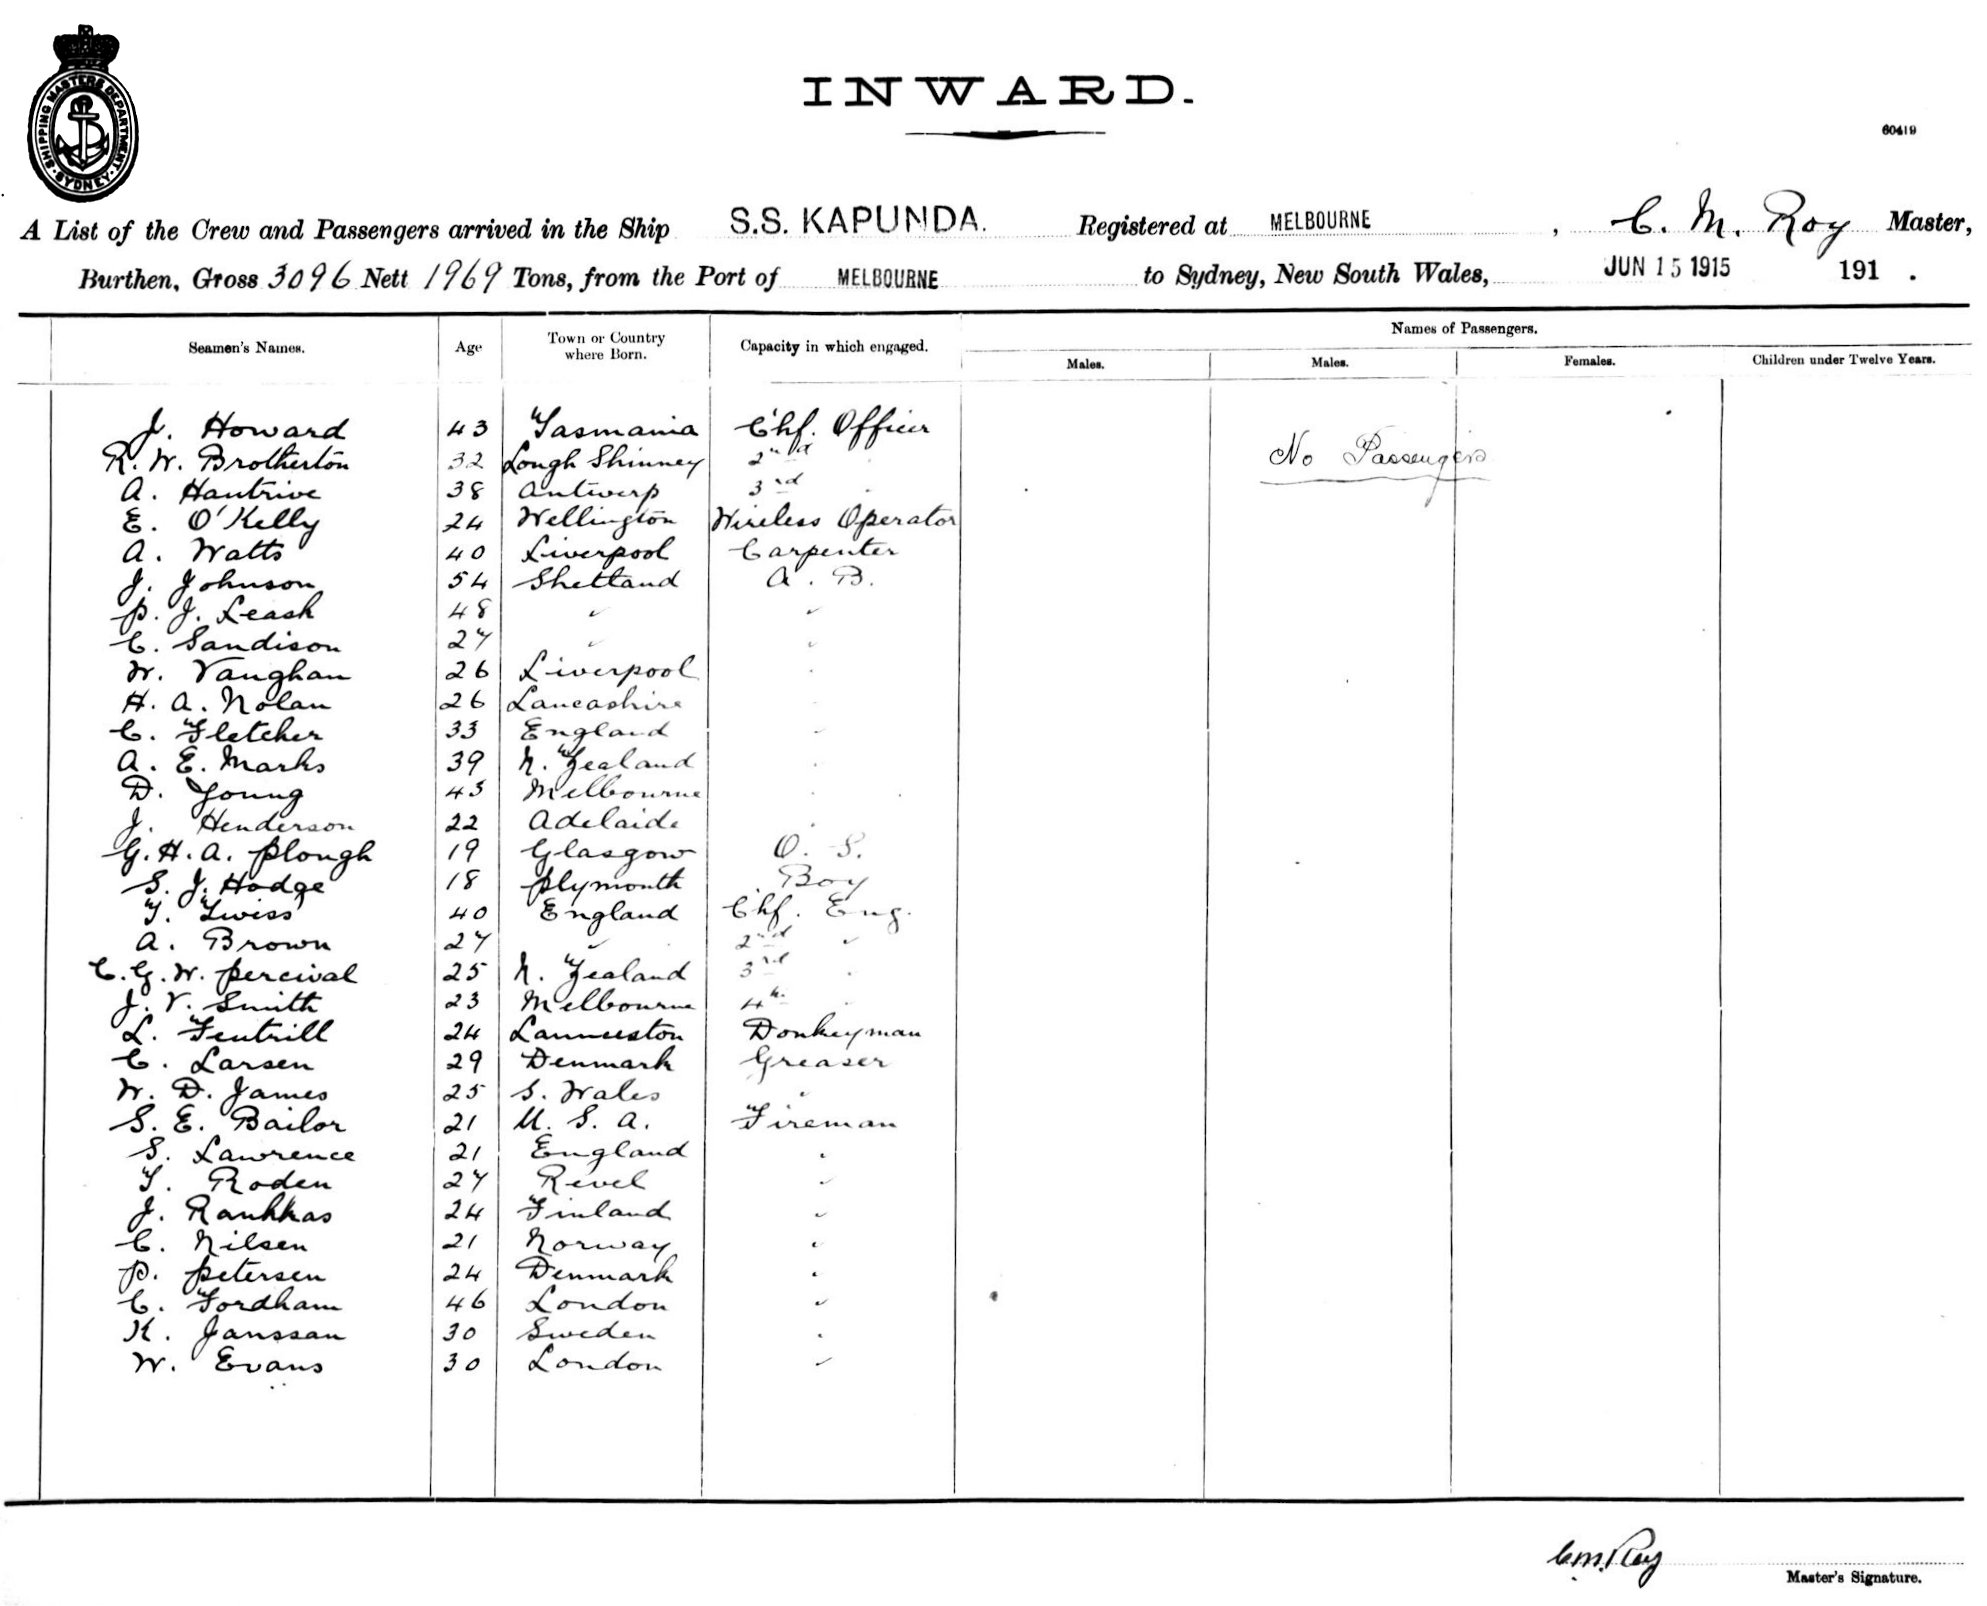 SHIPPING MASTERS DEPARTMENT · SYDNEY ·
INWARD.
60419
A List of the Crew and Passengers arrived in the Ship S.S. KAPUNDA. Registered at MELBOURNE, C. M. Roy Master,
Burthen, Gross 3096 Nett 1969 Tons, from the Port of MELBOURNE to Sydney, New South Wales, JUN 15 1915 191 .
Names of Passengers.
Seamen's Names. Age Town or Country where Born. Capacity in which engaged. Males. Males. Females. Children under Twelve Years.
J. Howard 43 Tasmania Chf. Officer
R. W. Brotherton 32 Lough Shinney 2nd
No Passengers
A. Hantrive 38 Antwerp 3rd "
E. O'Kelly 24 Wellington Wireless Operator
A. Watts 40 Liverpool Carpenter
J. Johnson 54 Shetland A. B.
P. J. Leask 48 " "
C. Sandison 27 " "
W. Vaughan 26 Liverpool "
H. A. Nolan 26 Lancashire "
C. Fletcher 33 England "
A. E. Marks 39 N. Zealand "
D. Young 43 Melbourne "
J. Henderson 22 Adelaide "
G. H. A. Plough 19 Glasgow O. S.
S. J. Hodge 18 Plymouth Boy
T. Twiss 40 England Chf. Eng.
A. Brown 27 " 2nd "
C. G. W. Percival 25 N. Zealand 3rd "
J. V. Smith 23 Melbourne 4th "
L. Fentrill 24 Launceston Donkeyman
C. Larsen 29 Denmark Greaser
W. D. James 25 S. Wales "
S. E. Bailor 21 U. S. A. Fireman
S. Lawrence 21 England "
T. Roden 27 Revel "
J. Raukkas 24 Finland "
C. Nilsen 21 Norway "
P. Petersen 24 Denmark "
C. Fordham 46 London "
K. Janssan 30 Sweden "
W. Evans 30 London "
C. M. Roy
Master's Signature.